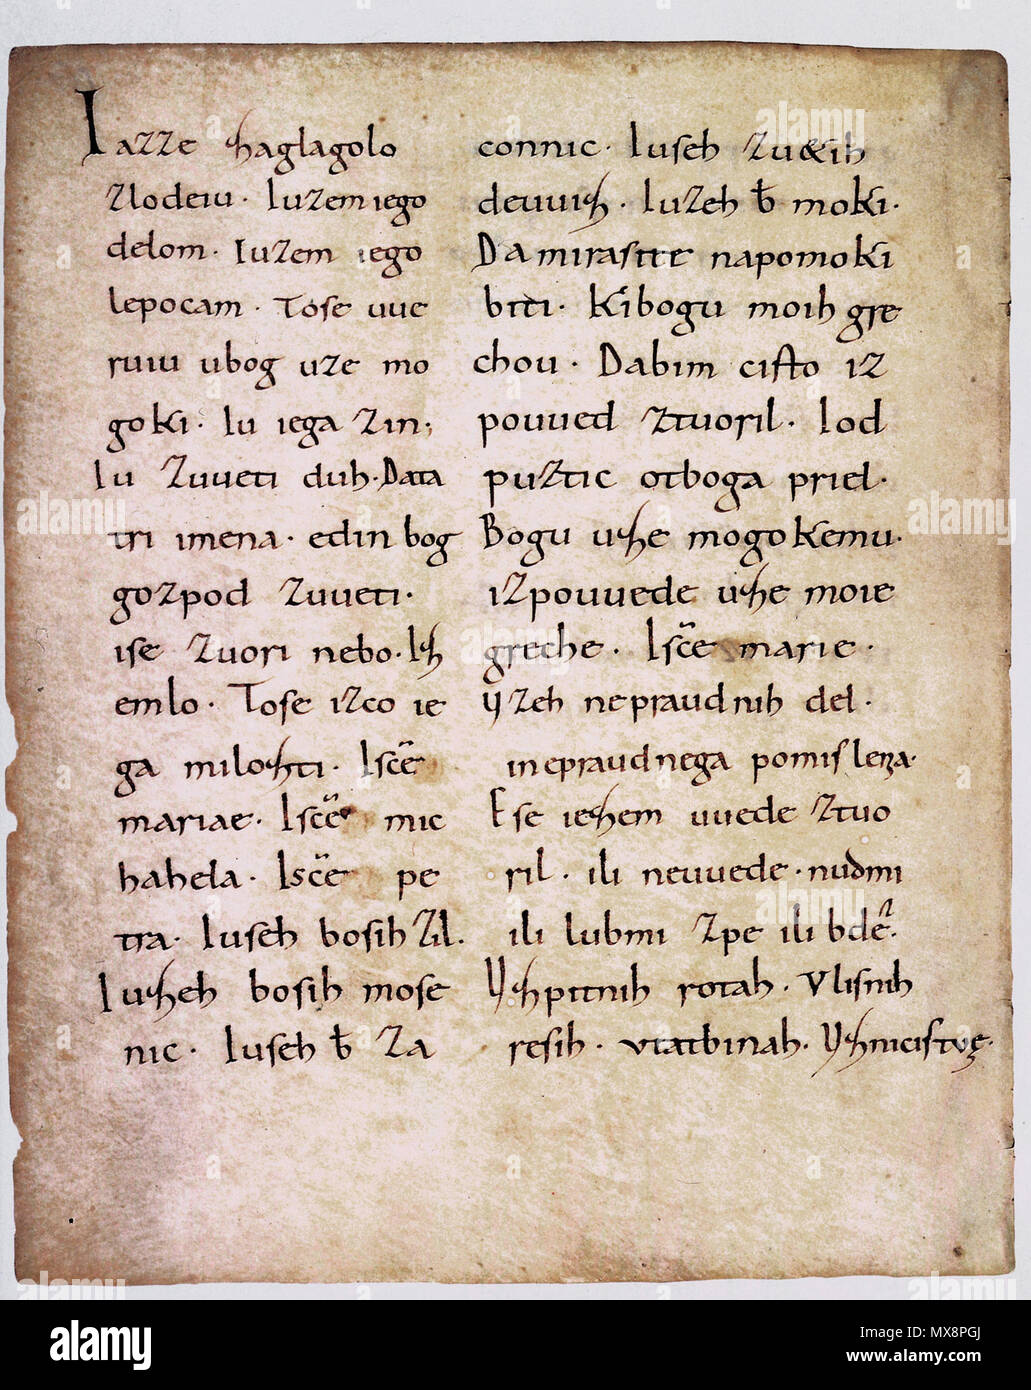 Iazze zhaglagolo
zlodeiu. Iuzem iego
delom. Iuzem iego
lepocam. Tose uue
ruiu ubog uze mo
goki. Iu iega zin.
Iu zuueti duh. Data
tri imena. edin bog
gozpod zuueti.
ise zuori nebo. Izh
emlo. Tose izco ie
ga milozhti. Isce
mariae. Isce mic
hahela. Isce pe
tra. Iuseh bosih zil.
Iuzheh bosih mose
nic. Iuseh b za
connic. Iuseh zu&ih
deuuizh. Iuzeh b moki.
Da mirasite napomoki
biti. Kibogu moih gre
chou. Dabim cisto iz
pouued ztuoril. Iod
puztic otboga priel.
Bogu uzhe mogokemu.
izpouuede uzhe moie
greche. Isce marie.
Yzeh nepraudnih del.
inepraudnega pomislena.
Ese iezhem uuede ztuo
ril. ili neuuede. nudmi
ili lubmi zpe ili bde.
Yzhpitnih rotah. Vlisnih
resih. vtatbinah. Yzhnicistve.
alamy
Image ID: MX8PGJ
www.alamy.com